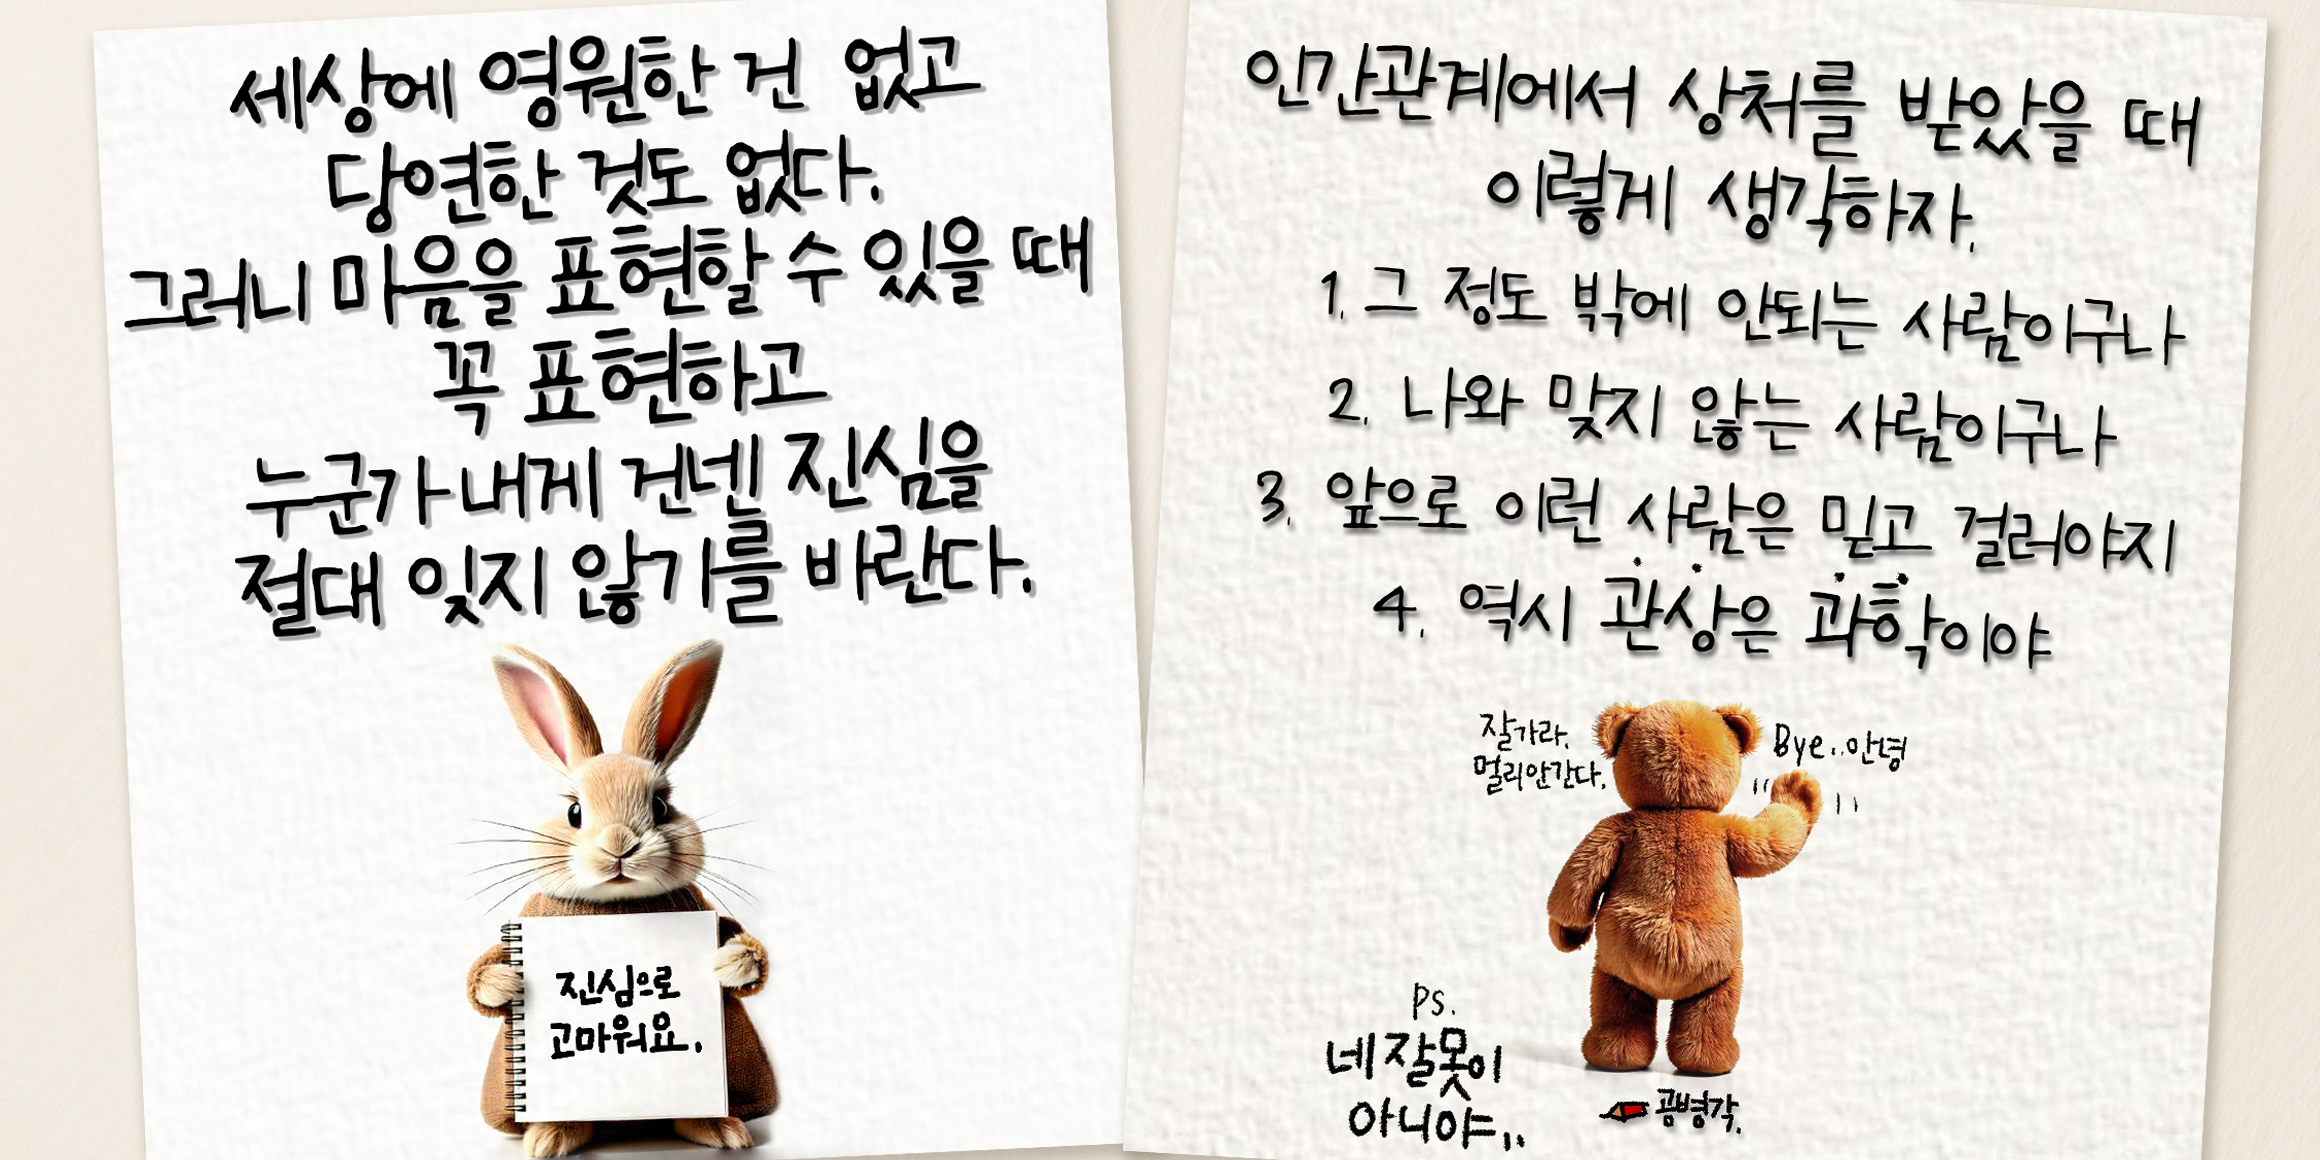 세상에 영원한 건 없고
당연한 것도 없다.
그러니 마음을 표현할 수 있을 때
꼭 표현하고
누군가 내게 건넨 진심을
절대 잊지 않기를 바란다.
진심으로
고마워요.
인간관계에서 상처를 받았을 때
이렇게 생각하자.
1. 그 정도 밖에 안되는 사람이구나
2. 나와 맞지 않는 사람이구나
3. 앞으로 이런 사람은 믿고 걸러야지
4. 역시 관상은 과학이야
잘가라.
멀리안간다.
Bye..안녕
PS.
네 잘못이
아니야..
공병각.